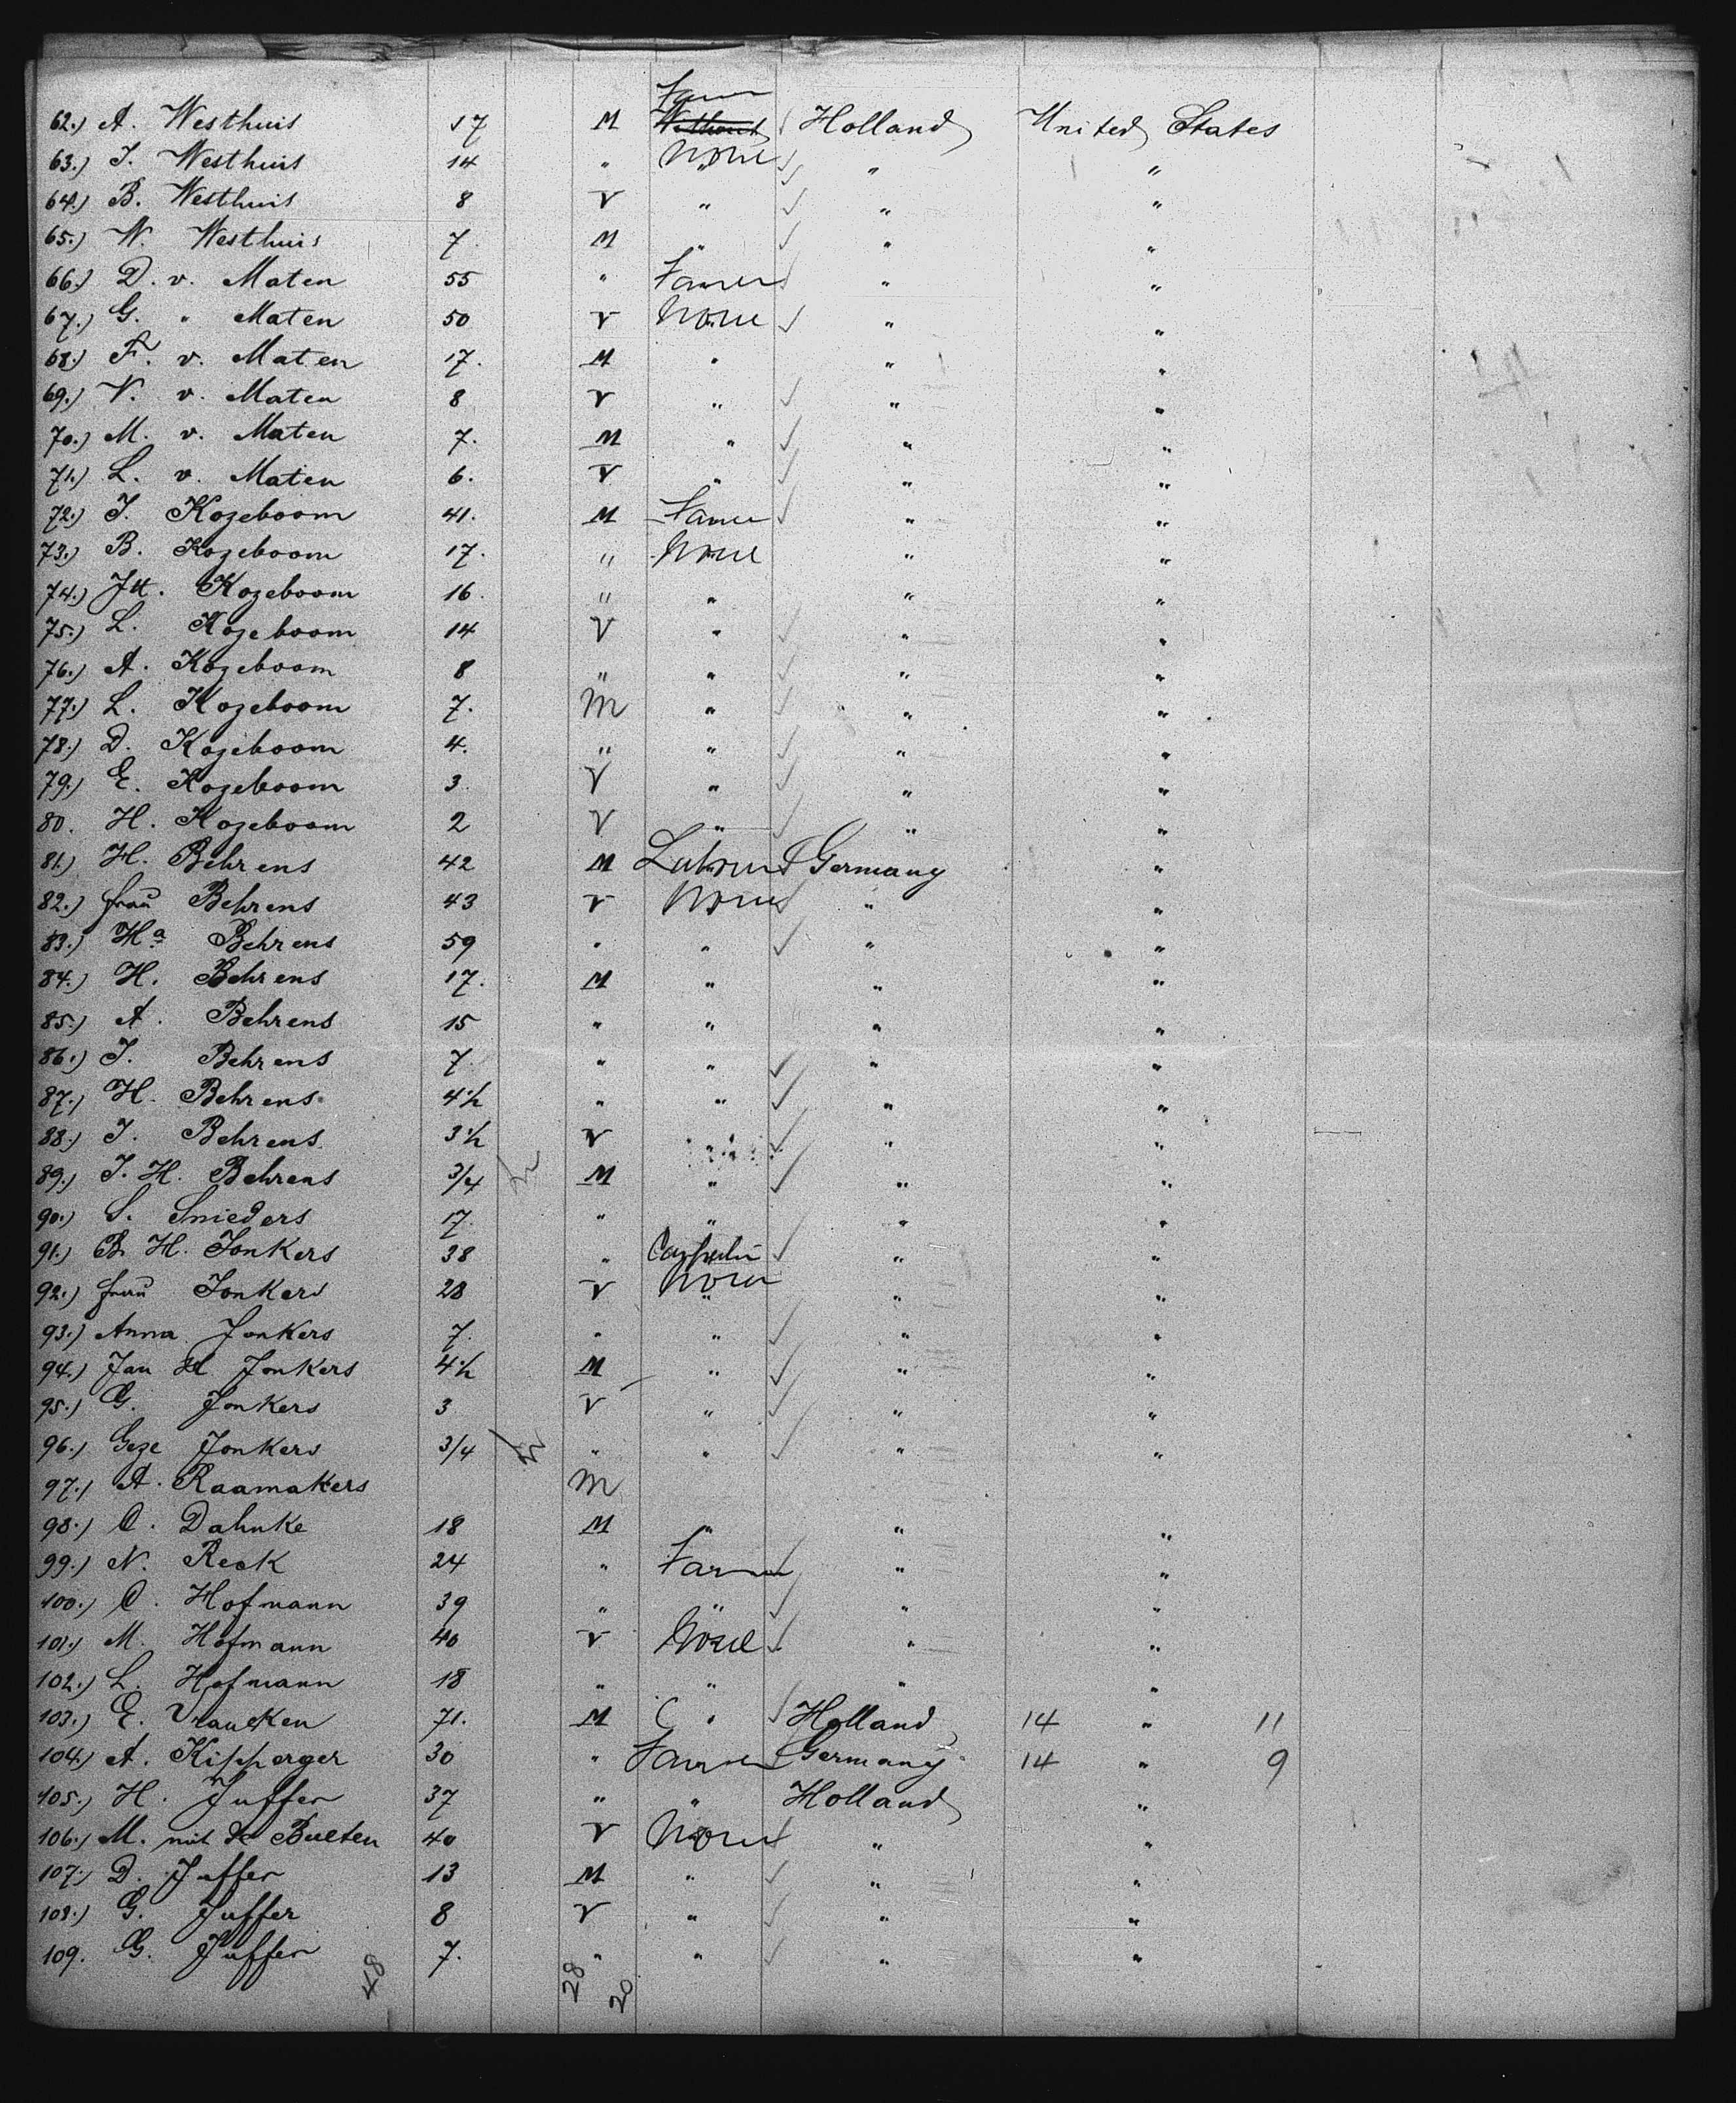 Farmer
62.) A. Westhuis 17 M Without Holland United States
63.) J. Westhuis 14 " None " "
64.) B. Westhuis 8 V " " "
65.) W. Westhuis 7. M " " "
66.) D. v. Maten 55 " Farmer " "
67.) G. " Maten 50 V None " "
68.) F. v. Maten 17. M " " "
69.) V. v. Maten 8 V " " "
70.) M. v. Maten 7. M " " "
71.) L. v. Maten 6. V " " "
72.) J. Kozeboom 41. M Farmer " "
73.) B. Kozeboom 17. " None " "
74.) JH. Kozeboom 16. " " " "
75.) L. Kozeboom 14 V " " "
76.) A. Kozeboom 8 " " " "
77.) L. Kozeboom 7. M " " "
78.) D. Kozeboom 4. " " " "
79.) E. Kozeboom 3. V " " "
80. H. Kozeboom 2 V " " "
81.) H. Behrens 42 M Laborer Germany "
82.) frau Behrens 43 V None " "
83.) Ha Behrens 59 " " " "
84.) H. Behrens 17. M " " "
85.) A. Behrens 15 " " " "
86.) J. Behrens 7. " " " "
87.) H. Behrens 4½ " " " "
88.) J. Behrens 3½ V " " "
89.) J. H. Behrens 3/4 M " " "
90.) S. Snieders 17. " " " "
91.) B. H. Jonkers 38 " " "
92.) frau Jonkers 28 V None " "
93.) Anna Jonkers 7. " " " "
94.) Jan H Jonkers 4½ M " " "
95.) G. Jonkers 3 V " " "
96.) Geze Jonkers 3/4 " " " "
97.) A. Raamakers M
98.) C. Dahnke 18 M " " "
99.) N. Reck 24 " Farmer " "
100.) C. Hofmann 39 " " " "
101.) M. Hofmann 40 V None " "
102.) L. Hofmann 18 " " " "
103.) E. Vrancken 71. M " Holland 14 " 11
104.) A. Kipperger 30 " Farmer Germany 14 " 9
105.) H. Juffer 37 " " Holland "
106.) M. mit de Bulten 40 V None " "
107.) D. Juffer 13 M " " "
108.) G. Juffer 8 V " " "
109. G. Juffer 7. " " " "
48 28 20